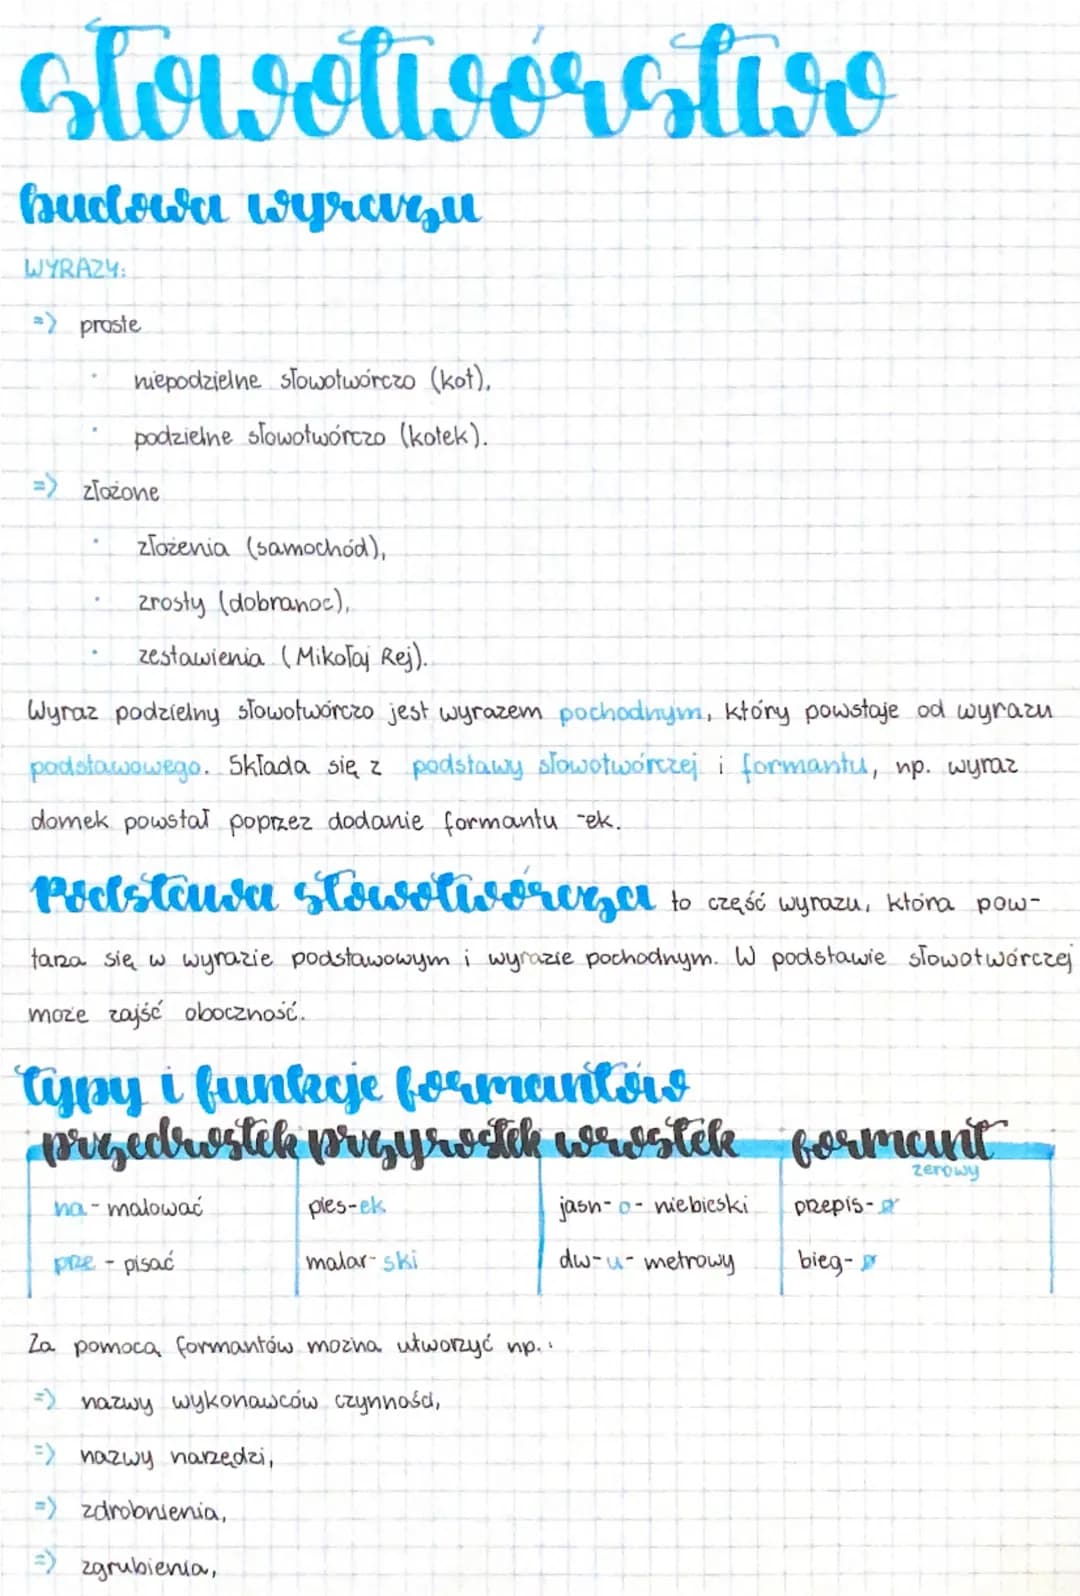 słowotwórstwo
budowa wyrazu
WYRAZY:
=> proste
· niepodzielne słowotwórczo (kot),
· podzielne słowotwórczo (kotek).
=> złożone
· złożenia (samochód),
· zrosty (dobranoc),
· zestawienia (Mikołaj Rej).
Wyraz podzielny słowotwórczo jest wyrazem pochodnym, który powstaje od wyrazu
podstawowego. Składa się z podstawy słowotwórczej i formantu, np. wyraz
domek powstał poprzez dodanie formantu -ek.
Podstawa słowotwórcza to część wyrazu, która pow-
tarza się w wyrazie podstawowym i wyrazie pochodnym. W podstawie słowotwórczej
może zajść oboczność.
typy i funkcje formantów
przedrostek przyrostek wrostek formant
zerowy
na - malować pies-ek jasn-o-niebieski przepis-ø
prze - pisać malar-ski dw-u-metrowy bieg-ø
Za pomocą formantów można utworzyć np.:
=> nazwy wykonawców czynności,
=> nazwy narzędzi,
=> zdrobnienia,
=> zgrubienia,